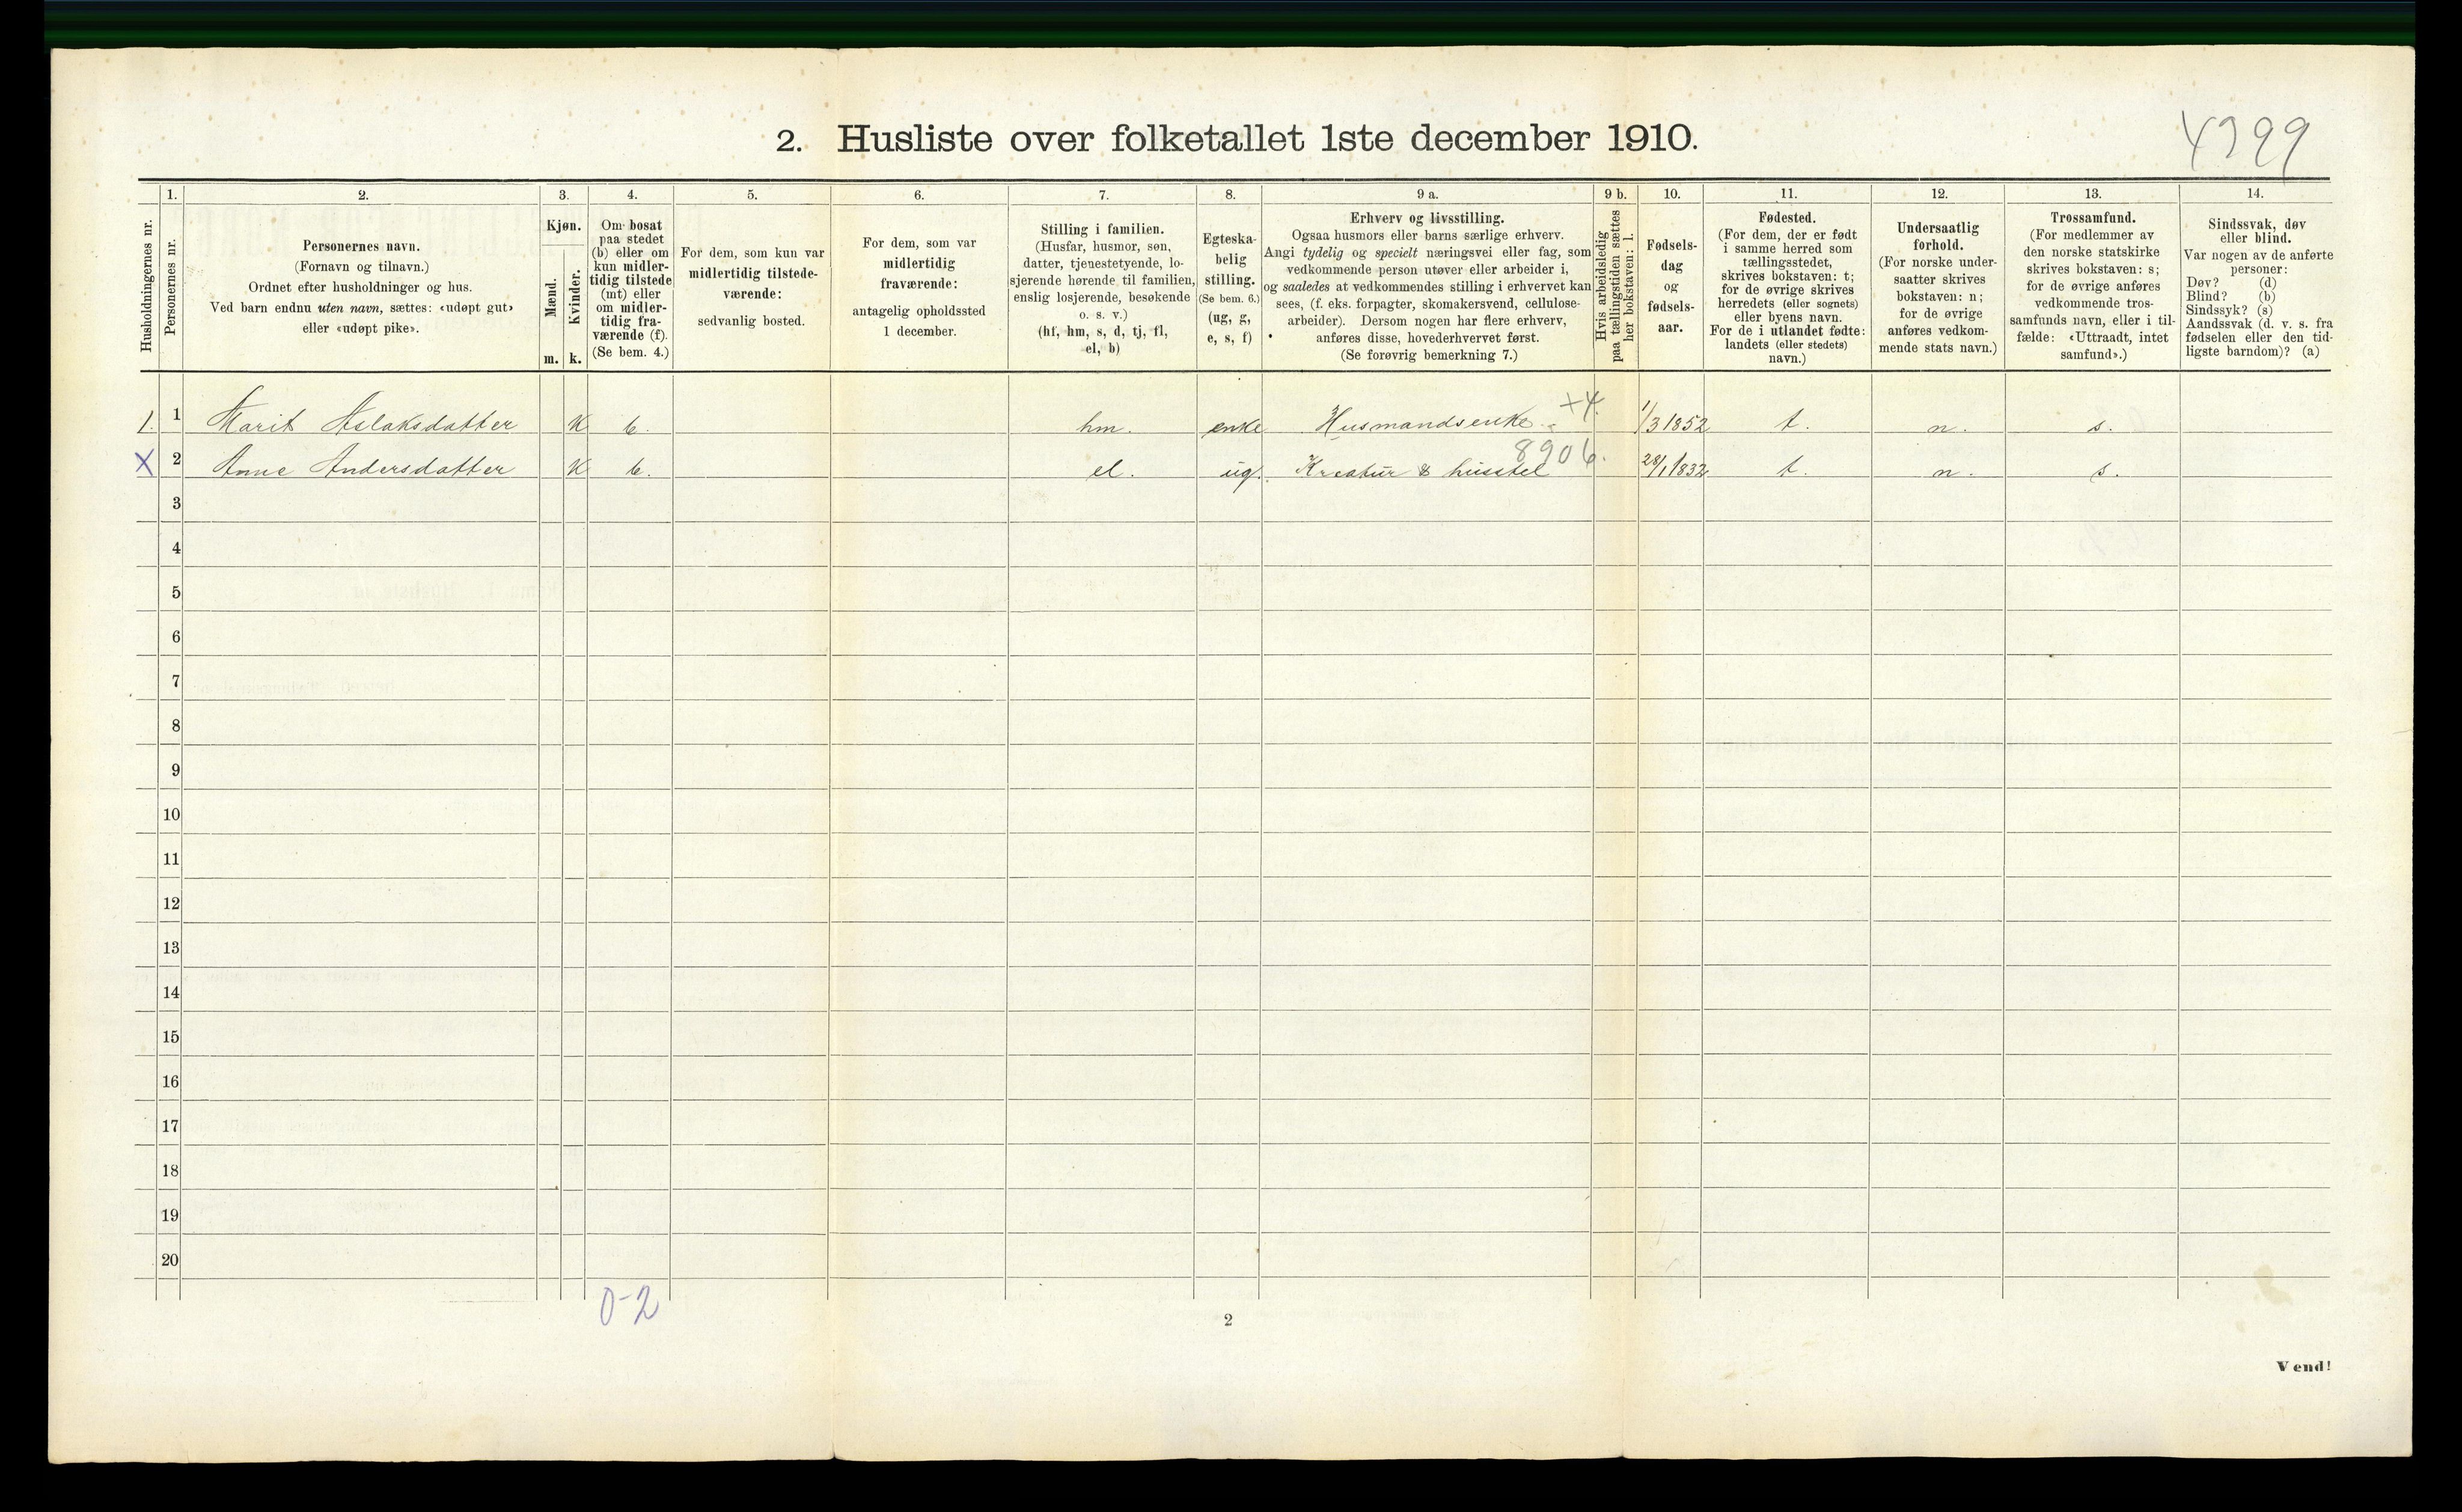 2. Husliste over folketallet 1ste december 1910.
4399
1. 2. 3. 4. 5. 6. 7. 8. 9 a. 9 b. 10. 11. 12. 13. 14.
Husholdningernes nr.
Personernes nr.
Personernes navn.
(Fornavn og tilnavn.)
Ordnet efter husholdninger og hus.
Ved barn endnu uten navn, sættes: «udøpt gut»
eller «udøpt pike».
Kjøn.
Mænd.
Kvinder.
m. k.
Om bosat
paa stedet
(b) eller om
kun midler-
tidig tilstede
(mt) eller
om midler-
tidig fra-
værende (f).
(Se bem. 4.)
For dem, som kun var
midlertidig tilstede-
værende:
sedvanlig bosted.
For dem, som var
midlertidig
fraværende:
antagelig opholdssted
1 december.
Stilling i familien.
(Husfar, husmor, søn,
datter, tjenestetyende, lo-
sjerende hørende til familien,
enslig losjerende, besøkende
o. s. v.)
(hf, hm, s, d, tj, fl,
el, b)
Egteska-
belig
stilling.
(Se bem. 6.)
(ug, g,
e, s, f)
Erhverv og livsstilling.
Ogsaa husmors eller barns særlige erhverv.
Angi tydelig og specielt næringsvei eller fag, som
vedkommende person utøver eller arbeider i,
og saaledes at vedkommendes stilling i erhvervet kan
sees, (f. eks. forpagter, skomakersvend, cellulose-
arbeider). Dersom nogen har flere erhverv,
anføres disse, hovederhvervet først.
(Se forøvrig bemerkning 7.)
Hvis arbeidsledig
paa tællingstiden sættes
her bokstaven: l.
Fødsels-
dag
og
fødsels-
aar.
Fødested.
(For dem, der er født
i samme herred som
tællingsstedet,
skrives bokstaven: t;
for de øvrige skrives
herredets (eller sognets)
eller byens navn.
For de i utlandet fødte:
landets (eller stedets)
navn.)
Undersaatlig
forhold.
(For norske under-
saatter skrives
bokstaven: n;
for de øvrige
anføres vedkom-
mende stats navn.)
Trossamfund.
(For medlemmer av
den norske statskirke
skrives bokstaven: s;
for de øvrige anføres
vedkommende tros-
samfunds navn, eller i til-
fælde: «Uttraadt, intet
samfund».)
Sindssvak, døv
eller blind.
Var nogen av de anførte
personer:
Døv? (d)
Blind? (b)
Sindssyk? (s)
Aandssvak (d. v. s. fra
fødselen eller den tid-
ligste barndom)? (a)
1. 1 Marit Aslaksdatter K b. hm. enke Husmandsenke. +4. 1/3 1852 t. n. s.
X 2 Anne Andersdatter K b. el. ug. Kreatur & husstel 8906. 28/1 1832 t. n. s.
3
4
5
6
7
8
9
10
11
12
13
14
15
16
17
18
19
20
0-2
2
Vend!